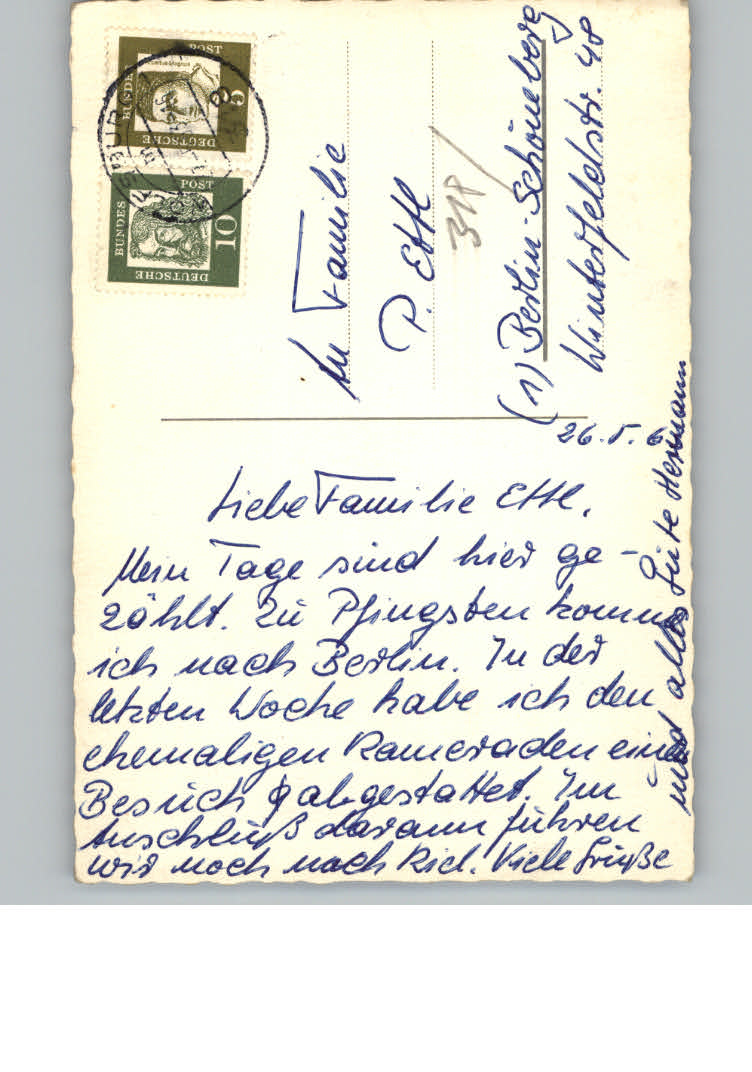 26. 5. 6
Liebe Familie Ettl.
Mein Tage sind hier ge-
zählt. Zu Pfingsten komme
ich nach Berlin. In der
letzten Woche habe ich den
ehemaligen Kameraden einen
Besuch abgestattet. Im
Anschluß darann führen
wir noch nach Kiel. Viele Grüße
und alles Gute Hermann
An Familie
P. Ettl
318/
(1) Berlin-Schöneberg
Winterfeldstr. 48
DEUTSCHE
BUNDES
POST
DEUTSCHE
BUNDES
POST
10